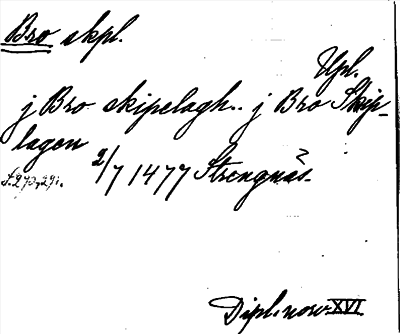 Bro skpl.
Upl.
j Bro skipelagh.. j Bro Skip-
lagen
2/7 1477 Strengnäs.
Dipl. nov. XVI